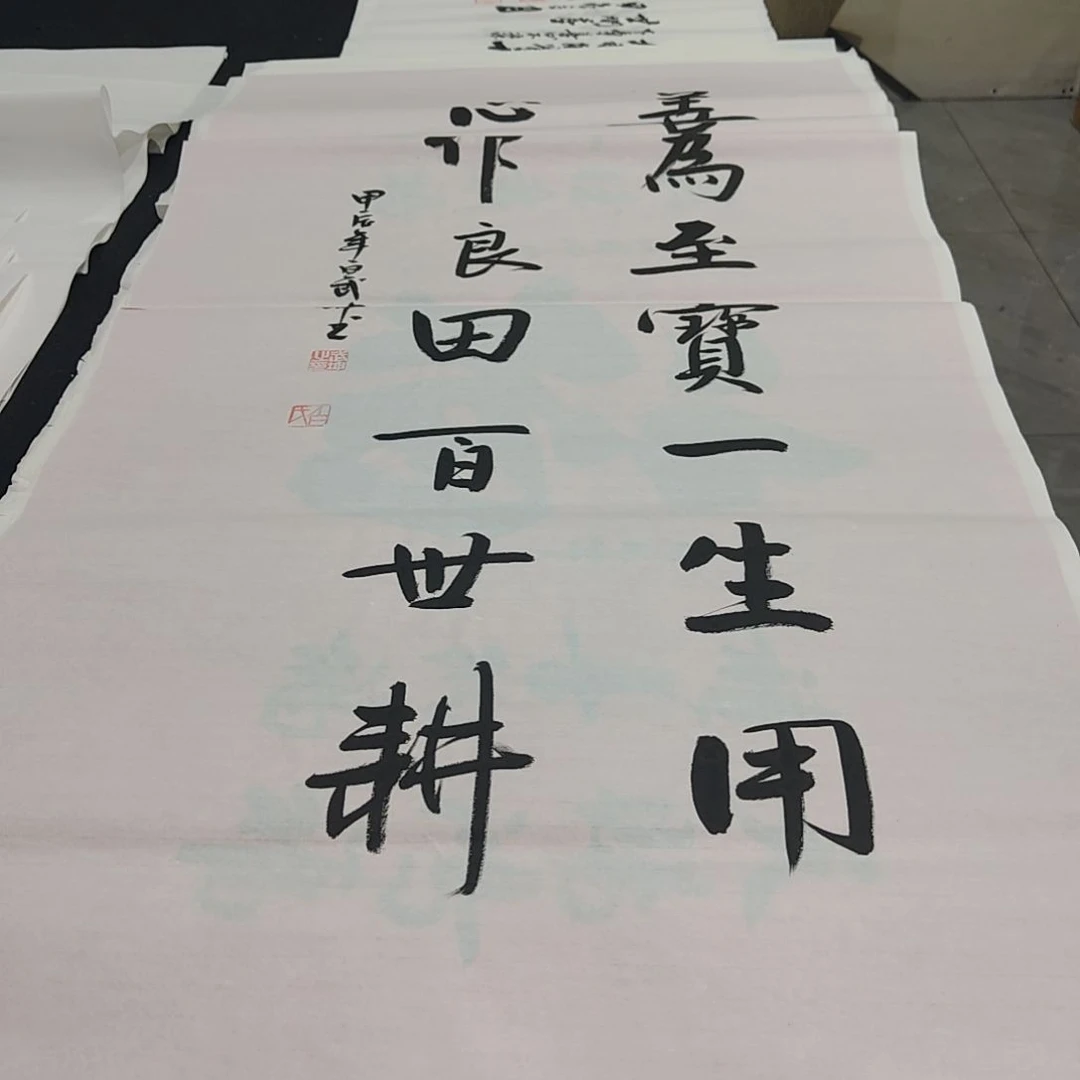 善為至寶一生用
心作良田百世耕
甲辰年